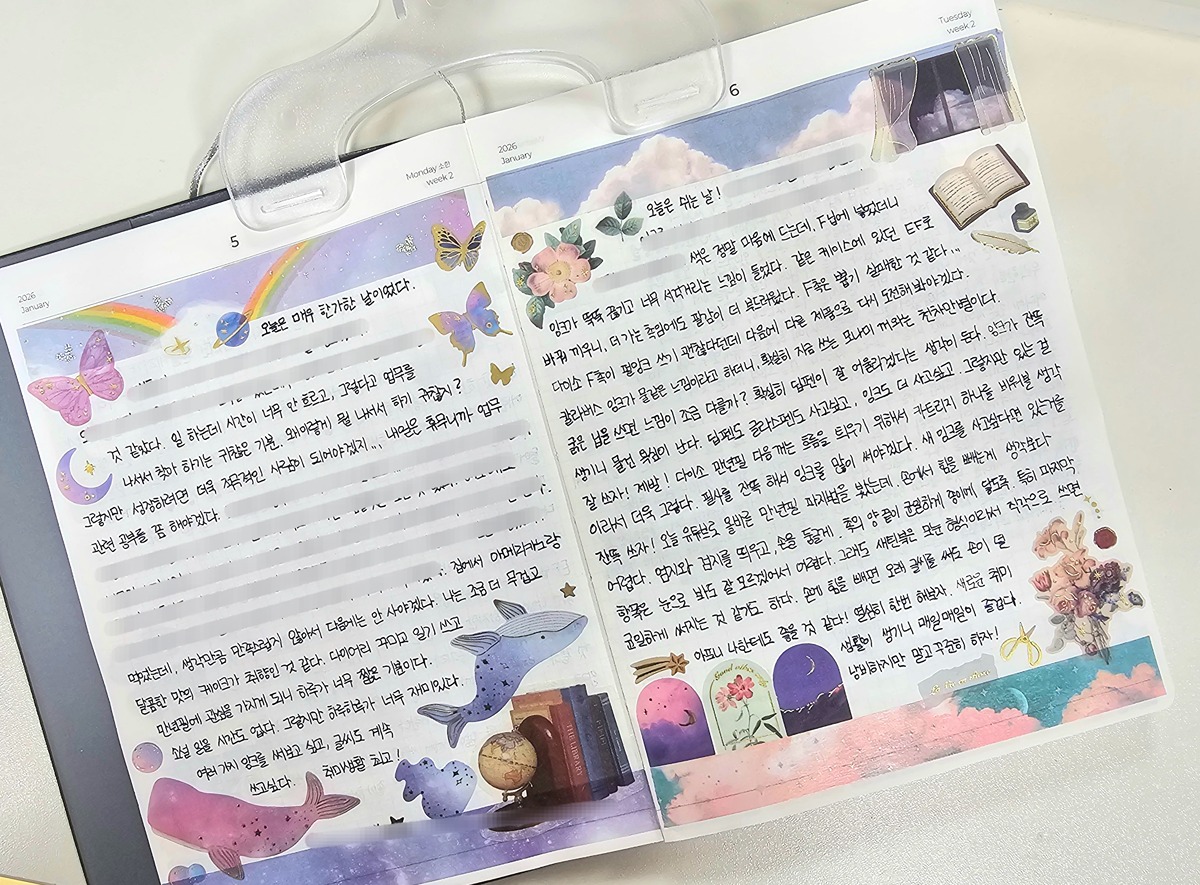 2026
January
5
Monday 소한
week 2
오늘은 매우 한가한 날이었다.
것 같았다. 일 하는데 시간이 너무 안 흐르고, 그렇다고 업무를
나서서 찾아 하기는 귀찮은 기분. 왜이렇게 뭘 나서서 하기 귀찮지?
그렇지만 성장하려면 더욱 적극적인 사람이 되어야겠지... 내일은 휴무니까 업무
관련 공부를 좀 해야겠다.
집에서 아메리카노랑
먹었는데, 생각만큼 만족스럽지 않아서 다음에는 안 사야겠다. 나는 조금 더 무겁고
달콤한 맛의 케이크가 취향인 것 같다. 다이어리 꾸미고 일기 쓰고
만년필에 관심을 가지게 되니 하루가 너무 짧은 기분이다.
소설 읽을 시간도 없다. 그렇지만 하루하루가 너무 재미있다.
여러가지 잉크를 써보고 싶고, 글씨도 계속
쓰고싶다. 취미생활 최고!
THE LIBRARY
2026
January
6
Tuesday
week 2
오늘은 쉬는 날!
색은 정말 마음에 드는데, F닙에 넣었더니
잉크가 뚝뚝 끊기고 너무 서걱거리는 느낌이 들었다. 같은 케이스에 있던 EF로
바꿔 끼우니, 더 가는 촉임에도 필감이 더 부드러웠다. F촉은 뽑기 실패한 것 같다...
다이소 F촉이 펄잉크 쓰기 괜찮다던데 다음에 다른 제품으로 다시 도전해 봐야겠다.
칼라버스 잉크가 물같은 느낌이라고 하더니, 확실히 지금 쓰는 모나미 꺼와는 천차만별이다.
굵은 닙을 쓰면 느낌이 조금 다를까? 확실히 딥펜이 잘 어울리겠다는 생각이 든다. 잉크가 잔뜩
생기니 물건 욕심이 난다. 딥펜도 글라스펜도 사고싶고, 잉크도 더 사고싶고. 그렇지만 있는 걸
잘 쓰자! 제발! 다이소 만년필 다음 꺼는 트음을 틔우기 위해서 카트리지 하나를 비워볼 생각
이라서 더욱 그렇다. 필사를 잔뜩 해서 잉크를 많이 써야겠다. 새 잉크를 사고싶다면 있는거를
잔뜩 쓰자! 오늘 유튜브로 올바른 만년필 파지법을 봤는데, 손에서 힘을 빼는게 생각보다
어렵다. 엄지와 검지를 띄우고, 손을 둥글게, 촉의 양 끝이 균일하게 종이에 닿도록. 특히 마지막
항목은 눈으로 봐도 잘 모르겠어서 어렵다. 그래도 새틴북은 못눈 형식이라서 직각으로 쓰면
균일하게 써지는 것 같기도 하다. 손에 힘을 빼면 오래 글씨를 써도 손이 덜
아프니 나한테도 좋을 것 같다! 열심히 한번 해보자. 새로운 취미
생활이 생기니 매일매일이 즐겁다.
낭비하지만 말고 꾸준히 하자!